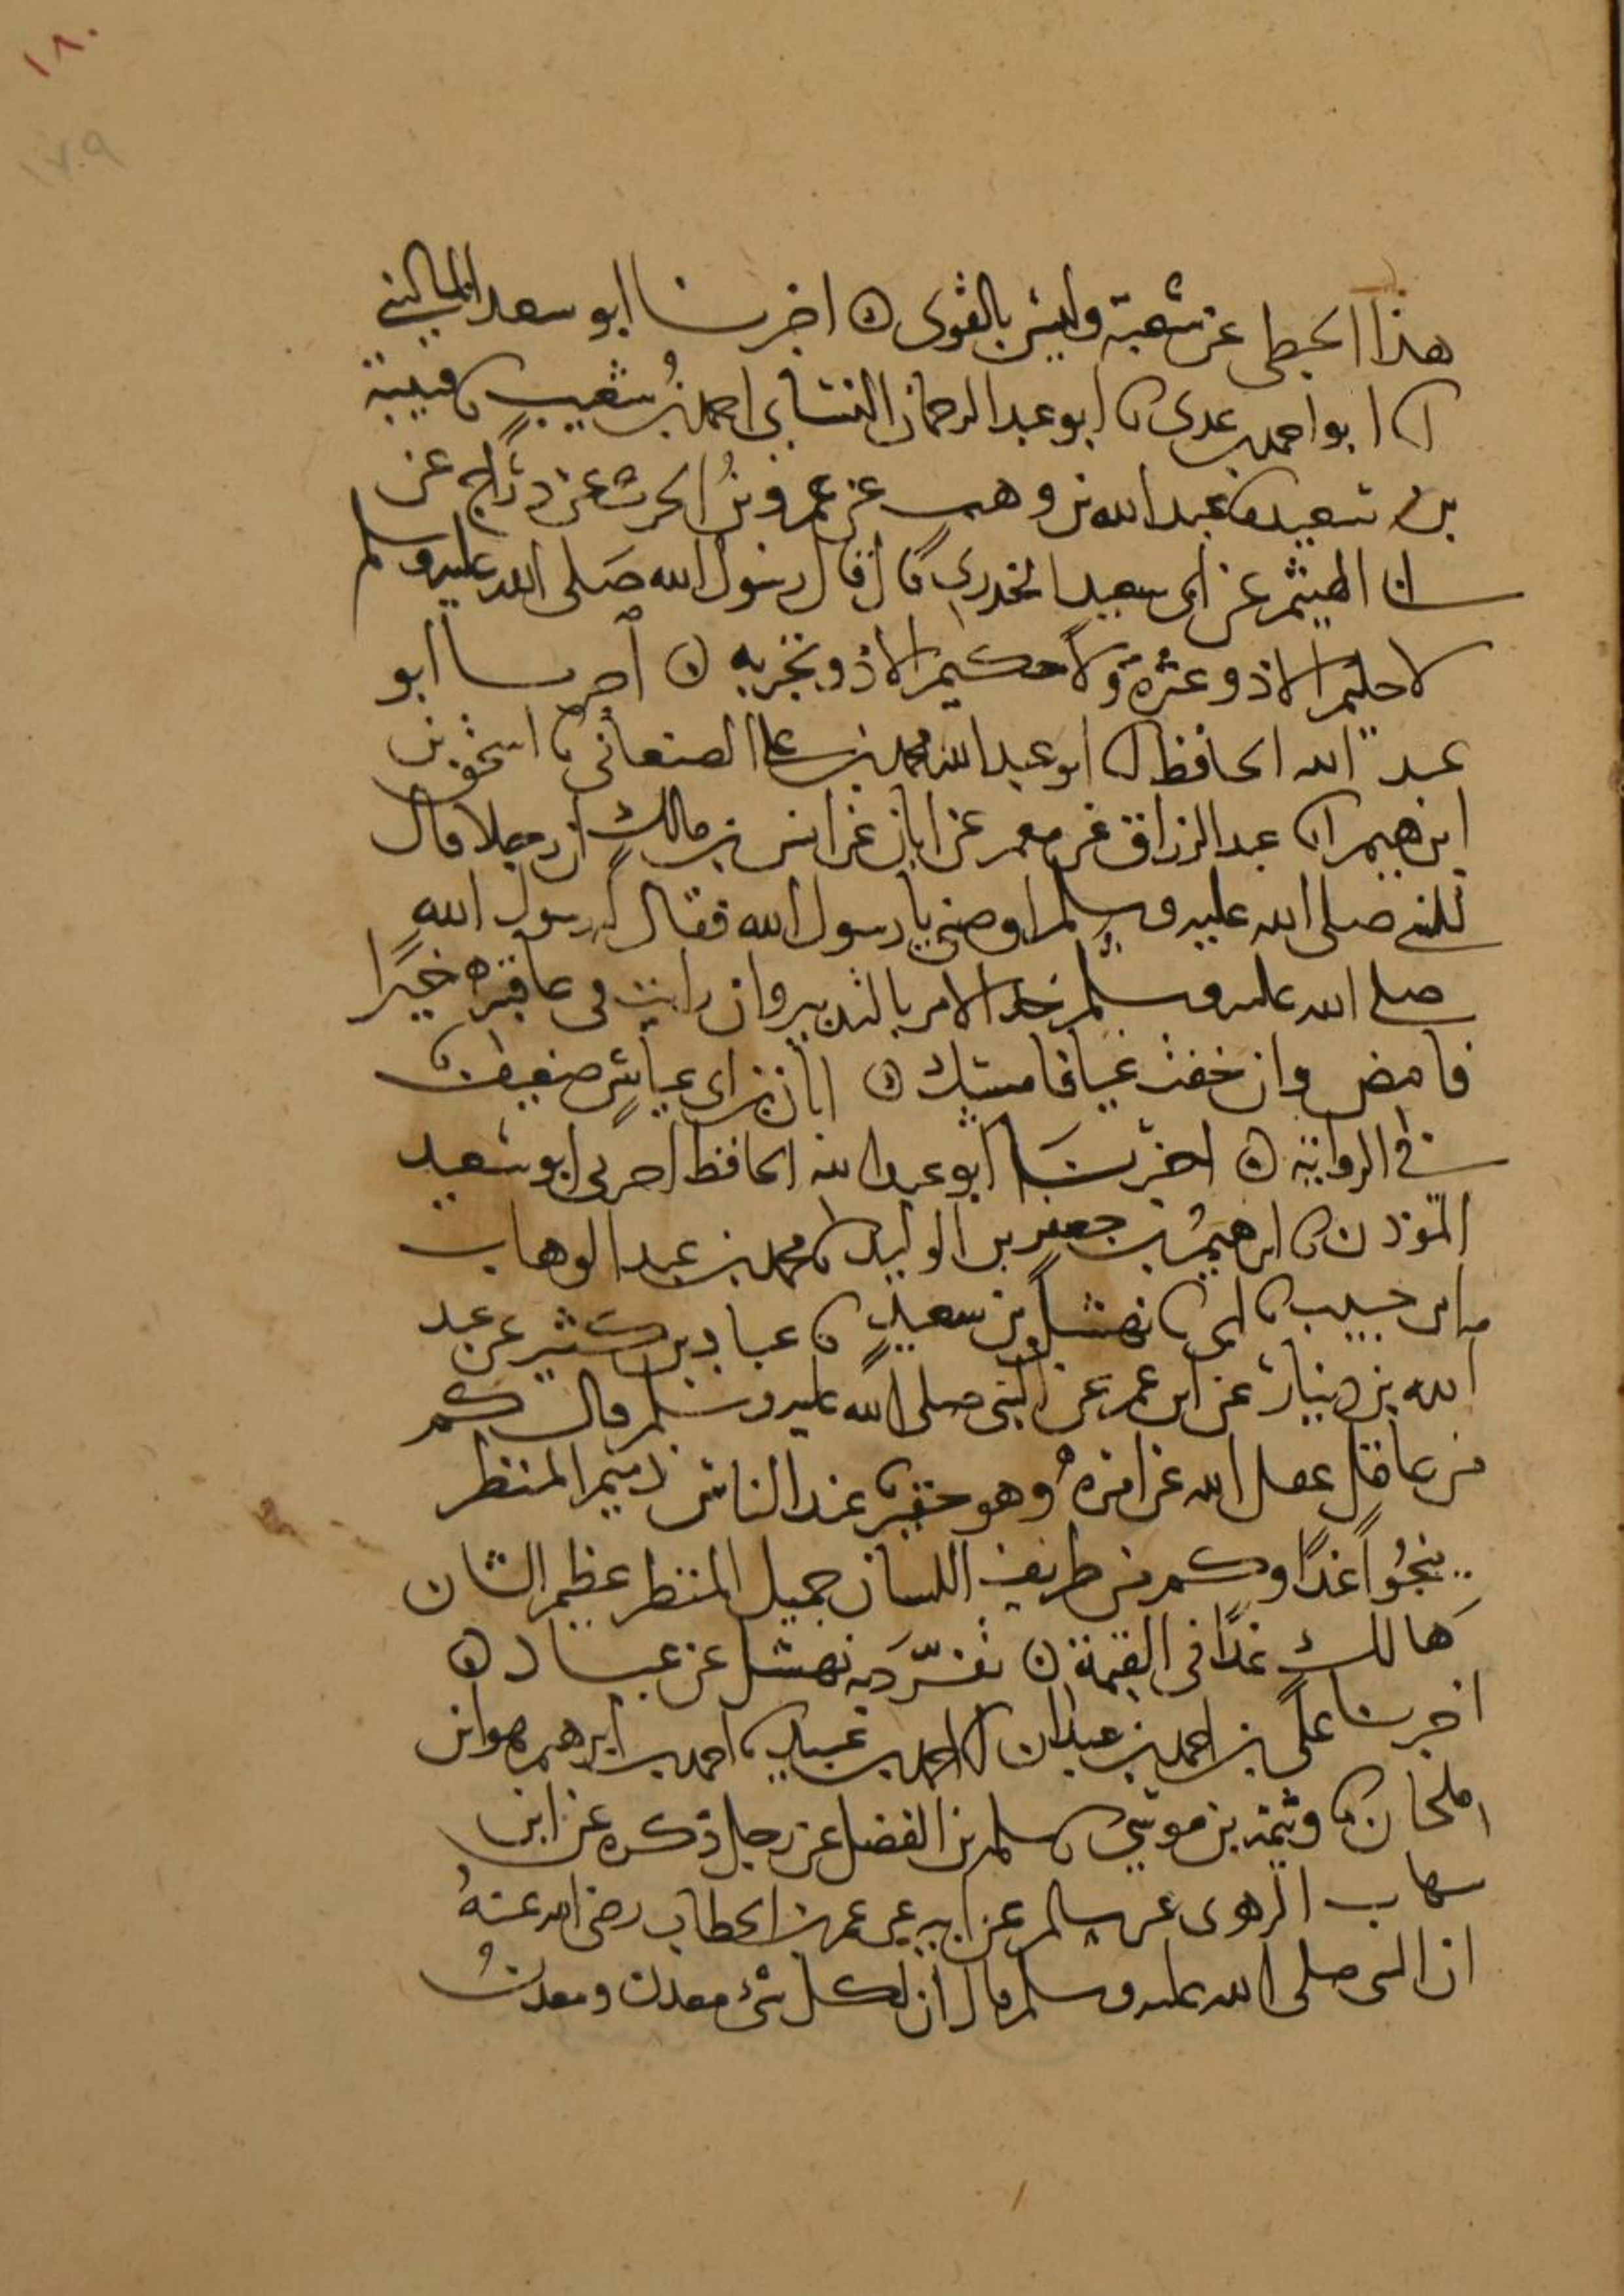 ١٨٠
١٧٩
هذا الحبطي عن شعبة وليس بالقوى ن اخبرنا ابو سعد الماليني
انا ابو احمد بن عدى نا ابو عبد الرحمان النسايى احمد بن شعيب نا قتيبة
بن سعيد نا عبد الله بن وهب عن عمرو بن الحرث عن دراج عن
ابى الهيثم عن ابى سعيد الخدرى قال قال رسول الله صلى الله عليه وسلم
لا حليم الا ذو عثرة ولا حكيم الا ذو تجربه ن اخبرنا ابو
عبد الله الحافظ انا ابو عبد الله محمد بن على الصنعانى نا اسحق بن
ابرهيم انا عبد الرزاق عن معمر عن ابان عن انس بن مالك ان رجلا قال
للنبى صلى الله عليه وسلم اوصنى يا رسول الله فقال له رسول الله
صلى الله عليه وسلم خذ الامر بالتدبير وان رايت فى عاقبته خيرا
فامض وان خفت غيا فامسك ن ابان بن ابى عياش ضعيف
فى الرواية ن اخبرنا ابو عبد الله الحافظ اخبرنى ابو سعيد
المؤذن نا ابرهيم بن جعفر بن الوليد نا محمد بن عبد الوهاب
ابن حبيب نا ابى نا نهشل بن سعيد نا عباد بن كثير عن عبد
الله بن دينار عن ابن عمر عن النبى صلى الله عليه وسلم قال كم
من عاقل عقل الله عن امره وهو حقير عند الناس ذميم المنظر
ينجوا غدا وكم من ظريف اللسان جميل المنظر عظيم الشان
هالك غدا فى القيمة ن تفرد به نهشل عن عباد ن
اخبرنا على بن احمد بن عبدان انا احمد بن عبيد نا احمد بن ابرهيم هو ابن
ملحان نا وثيمة بن موسى نا سلمة بن الفضل عن رجل ذكره عن ابن
شهاب الزهرى عن سالم عن ابيه عن عمر بن الخطاب رضى الله عنه
ان النبى صلى الله عليه وسلم قال ان لكل شئ معدن ومعدن